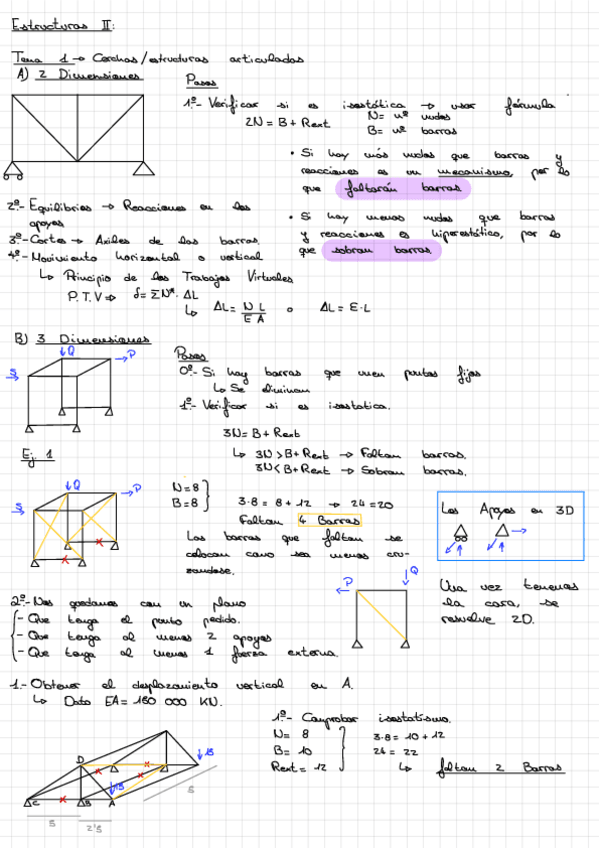 Estructuras II:
Tema 1 → Cerchas/estructuras articuladas
A) 2 Dimensiones
Pasos
1º.- Verificar si es isostática → usar fórmula
2N = B + Rext
N = nº nudos
B = nº barras
• Si hay más nudos que barras y
reacciones es un mecanismo, por lo
que faltarán barras
• Si hay menos nudos que barras
y reacciones es hiperestático, por lo
que sobran barras.
2º.- Equilibrios → Reacciones en los
apoyos.
3º.- Cortes → Axiles de las barras.
4º.- Movimiento horizontal o vertical
↳ Principio de los Trabajos Virtuales
P.T.V ⇒ δ = ΣN*. ΔL
↳ ΔL = N L / E A o ΔL = ε·L
B) 3 Dimensiones
Q
P
S
Pasos
0º.- Si hay barras que unen puntos fijos
↳ Se eliminan
1º.- Verificar si es isostatica.
3N = B + Rext
↳ 3N > B + Rext → Faltan barras.
3N < B + Rext → Sobran barras.
Ej. 1
Q
P
S
N = 8
B = 8
3·8 = 8 + 12 → 24 = 20
Faltan 4 Barras
Las barras que faltan se
colocan como sea menos cru-
zandose.
Los Apoyos en 3D
2º.- Nos quedamos con un plano
- Que tenga el punto pedido.
- Que tenga al menos 2 apoyos
- Que tenga al menos 1 fuerza externa.
P
Q
Una vez tenemos
la cara, se
resuelve 2D.
1.- Obtener el desplazamiento vertical en A.
↳ Dato EA = 180 000 KN.
1º.- Comprobar isostatismo.
N = 8
B = 10
Rext = 12
3·8 = 10 + 12
24 = 22
↳ faltan 2 Barras
D
C
B
A
15
15
5
2'5